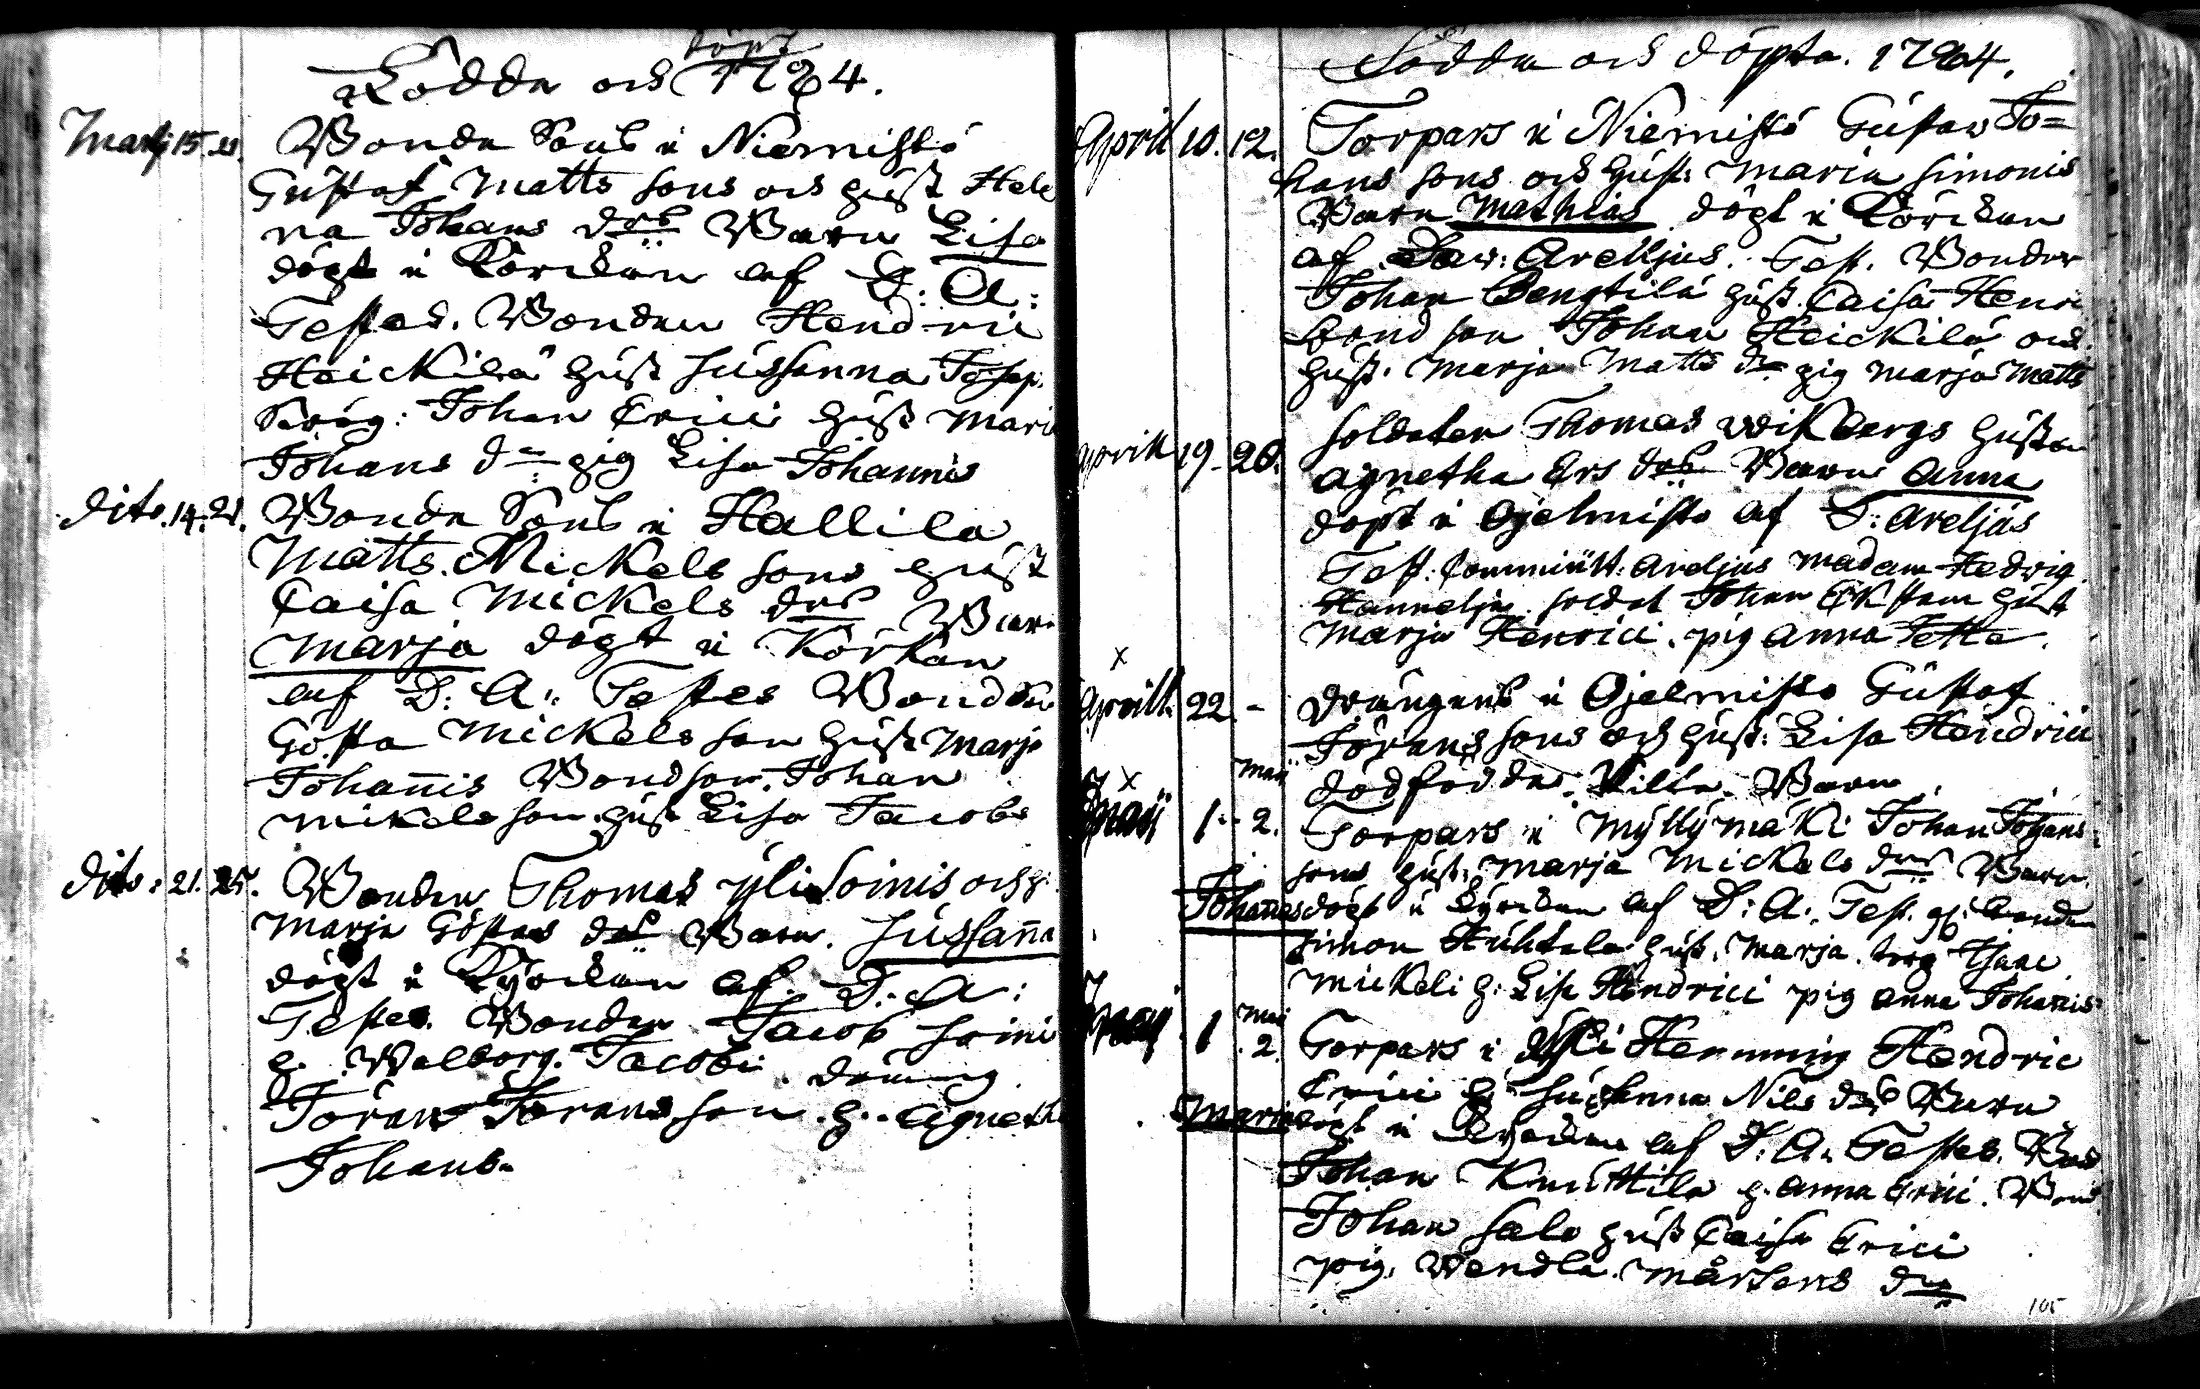 Födda och döpt 1764.
Martj 15. 21. Bonda Sons i Niemistö
Gustaf Matts sons och hust Hele
na Johans drs Barn Lisa
döpt i Körckan af D: A:
Testes. Bonden Hendric
Heickilä hust Sussanna Josep.
Johan Erici hust Mari
Johans dr pig Lisa Johannis
dito. 14. 21. Bonda Sons i Hallila
Matts Mickels sons hust
Caisa Mickels drs Barn
Marja döpt i Körkan
af D: A: Testes Bonden
Gösta Mickels son hust Marja
Johannis Bondson Johan
Mikels son hust Lisa Jacobs
dito: 21. 25. Bonden Thomas yli Soinis och h:
Marja Göstas drs Barn. Sussanna
döpt i Kyrckan af D: A:
Testes. Bonden Jacob Soini
h. Walborg Jacobi. dräng
Jöran Jörans son h. Agneth
Johans.
Födda och döpta. 1764.
April 10. 12. Torpars i Niemistö Gustaw Jo=
hans sons och hust: Maria Simonis
Barn Mathias döpt i Körckan
af Dav: Areljus. Test. Bonden
Johan Bengtilä hust. Caisa Henri
bond son Johan Heickilä och
hust. Marja Matts dr pig Marja Matts
April 19. 20. Soldaten Thomas Wikbergs hustru
Agnetha Ers drs Barn Anna
döpt i Ojelmisto af D: Areljus
Test: Comminist: Areljus Madam Hedvig
soldat Johan Ekstam hust
Marja Henrici. pig Anna
x
Aprill 22 - drängens i Ojelmisto Gustaf
Jörans sons och hust: Lisa Hendrici
dödfödda. Barn
x
Maij 1. Maij 2. Torpars i Myllymäki Johan Johans
sons hust. Marja Mickels drs Barn
Johannes döpt i Kyrckan af D: A: Test. bonden
Simon Huhtala hust. Marja. torp Isaac
Mickeli h: Lisa Hindrici pig Anna Johannis
Maij 1 Maij 2. Torpars i Hemming Hendric
Erici h: Susanna Nils drs Barn
Maria döpt i Kyrckan af D: A. Testes. Bond
Johan Knuttila h. Anna Erici. Bond
Johan Salo hust Caisa Erici
pig. Wendla Mårtens dr
105